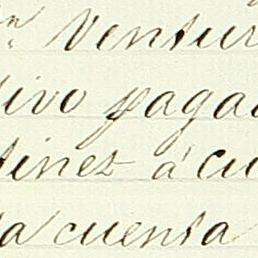 n Ventur
tivo paga
tinez á cu
ta cuenta